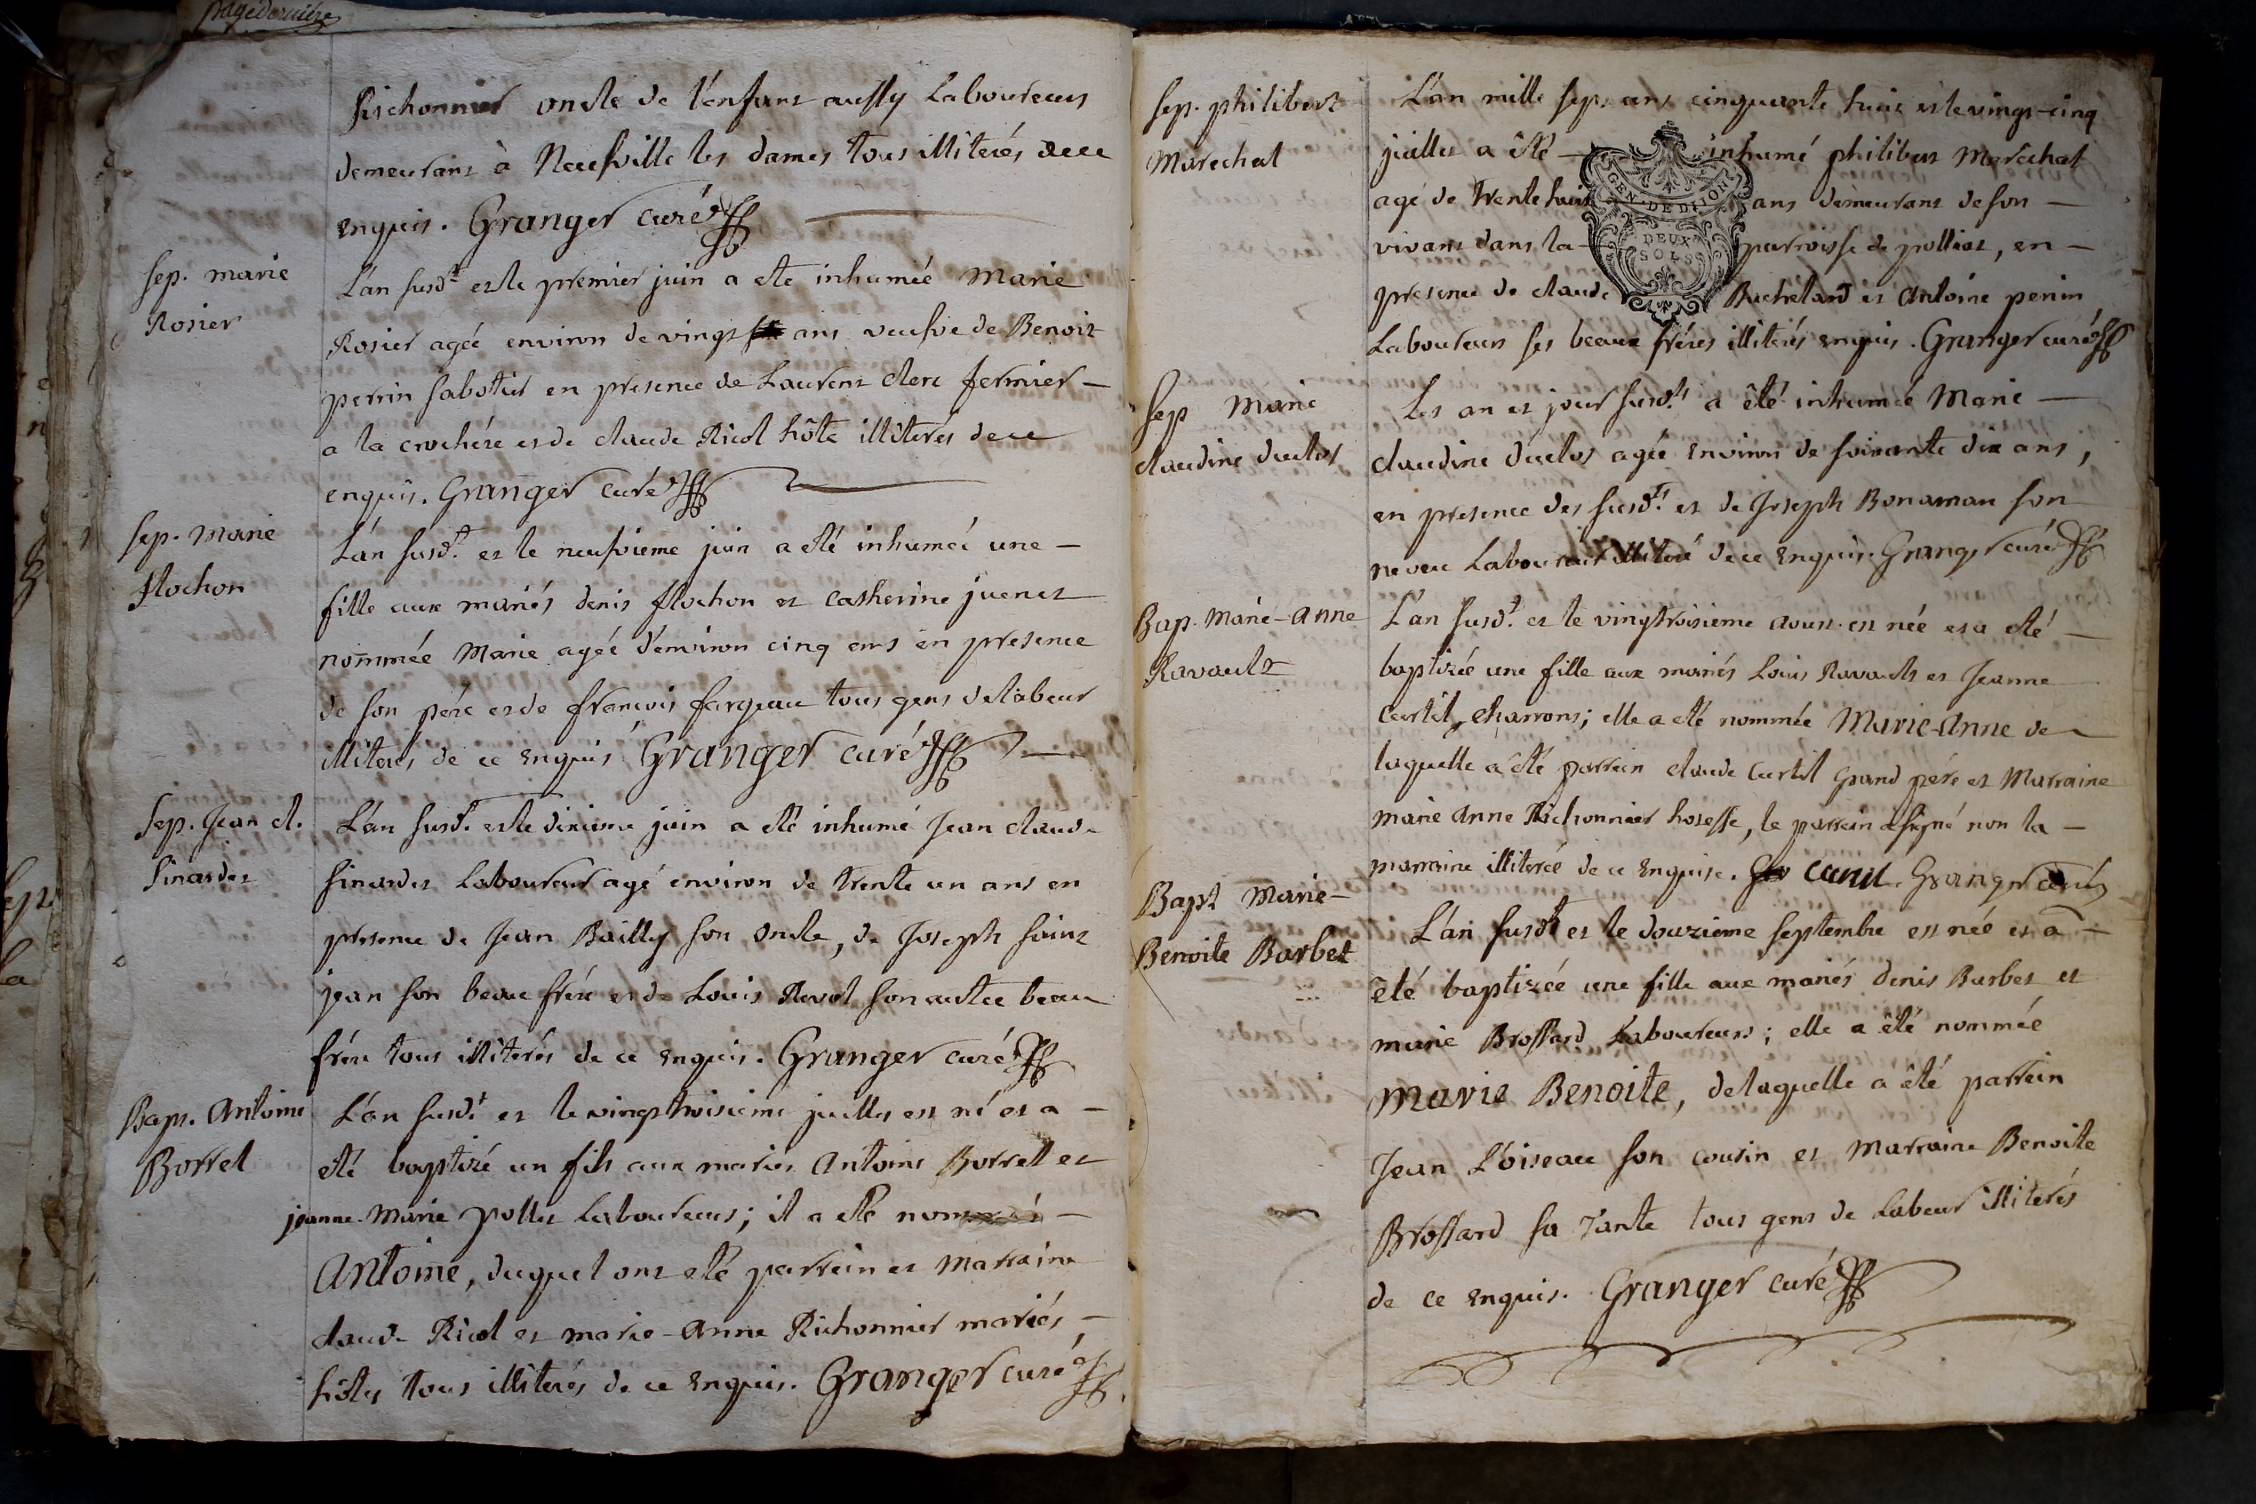 page derniére
Richonnier oncle de l'enfant aussy Laboureurs
demeurans à Neufville les dames tous illiterés dece
enquis. Granger curé
sep. marie
Rosier
L'an susd.t et le premier juin a eté inhumée Marie
Rosier agée environ de vingt ans veufve de Benoit
perrin sabotier en presence de Laurent clerc fermier -
a la crochére et de claude Ricol hôte illiterés dece
enquis. Granger curé
sep. Marie
flochon
L'an susd.t et le neufvieme juin a eté inhumée une -
fille aux mariés denis flochon et catherine juenet
nommée Marie agée d'environ cinq ans en presence
de son pére et de francois fargeau tous gens de labeur
illiterés de ce enquis Granger curé
sep. Jean cl.
sinardet
L'an susd.t et le dixieme juin a eté inhumé Jean claude
sinardet Laboureur agé environ de trente un ans en
presence de Jean Bailly son oncle, de Joseph saint
jean son beau frére et de Louis Revol son autre beau
frére tous illiterés de ce enquis. Granger curé
Bapt. Antoine
Borret
L'an susd.t et le vingttroisieme juillet est né et a -
eté baptizé un fils aux mariés Antoine Borret et
jeanne-Marie pollet Laboureurs; il a eté nommé -
Antoine, duquel ont eté parrein et Marraine
claude Ricol et marie-Anne Richonnier mariés, -
hôtes tous illiterés de ce enquis. Granger curé
Sep. philibert
Marechal
L'an mille sept cens cinquante huit et le vingt-cinq
juillet a êté - inhumé philibert Marechal
agé de trente huit ans demeurant de son -
vivant dans la - parroisse de polliat, en -
presence de claude Buchelard et Antoine perrin
Laboureurs ses beaux fréres illiterés enquis. Granger curé
GEN. DE DIJON
DEUX
SOLS
Sep Marie
claudine duclos
Les an et jour susd.ts a êté inhumée Marie -
claudine duclos agée environ de soixante dix ans,
en presence des susd.ts et de Joseph Bonaman son
neveu Laboureur illiteré de ce enquis. Granger curé
Bap. Marie-Anne
Ravault
L'an susd.t et le vingttroisieme aoust est née et a eté -
baptizée une fille aux mariés Louis Ravault et Jeanne
curtil, charrons; elle a eté nommée Marie-Anne de
laquelle a êté parrein claude Curtil grand pére et Marraine
marie Anne Richonnier hotesse, le parrein a signé non la -
marraine illiterée de ce enquise. Curtil. Granger curé
Bapt Marie-
Benoite Barbet
L'an susd.t et le douzieme septembre est née et a -
êté baptizée une fille aux mariés denis Barbet et
marie Brossard Laboureurs; elle a êté nommée
Marie Benoite, de laquelle a êté parrein
Jean L'oiseau son cousin et Marraine Benoite
Brossard sa Tante tous gens de Labeur illiterés
de ce enquis. Granger curé